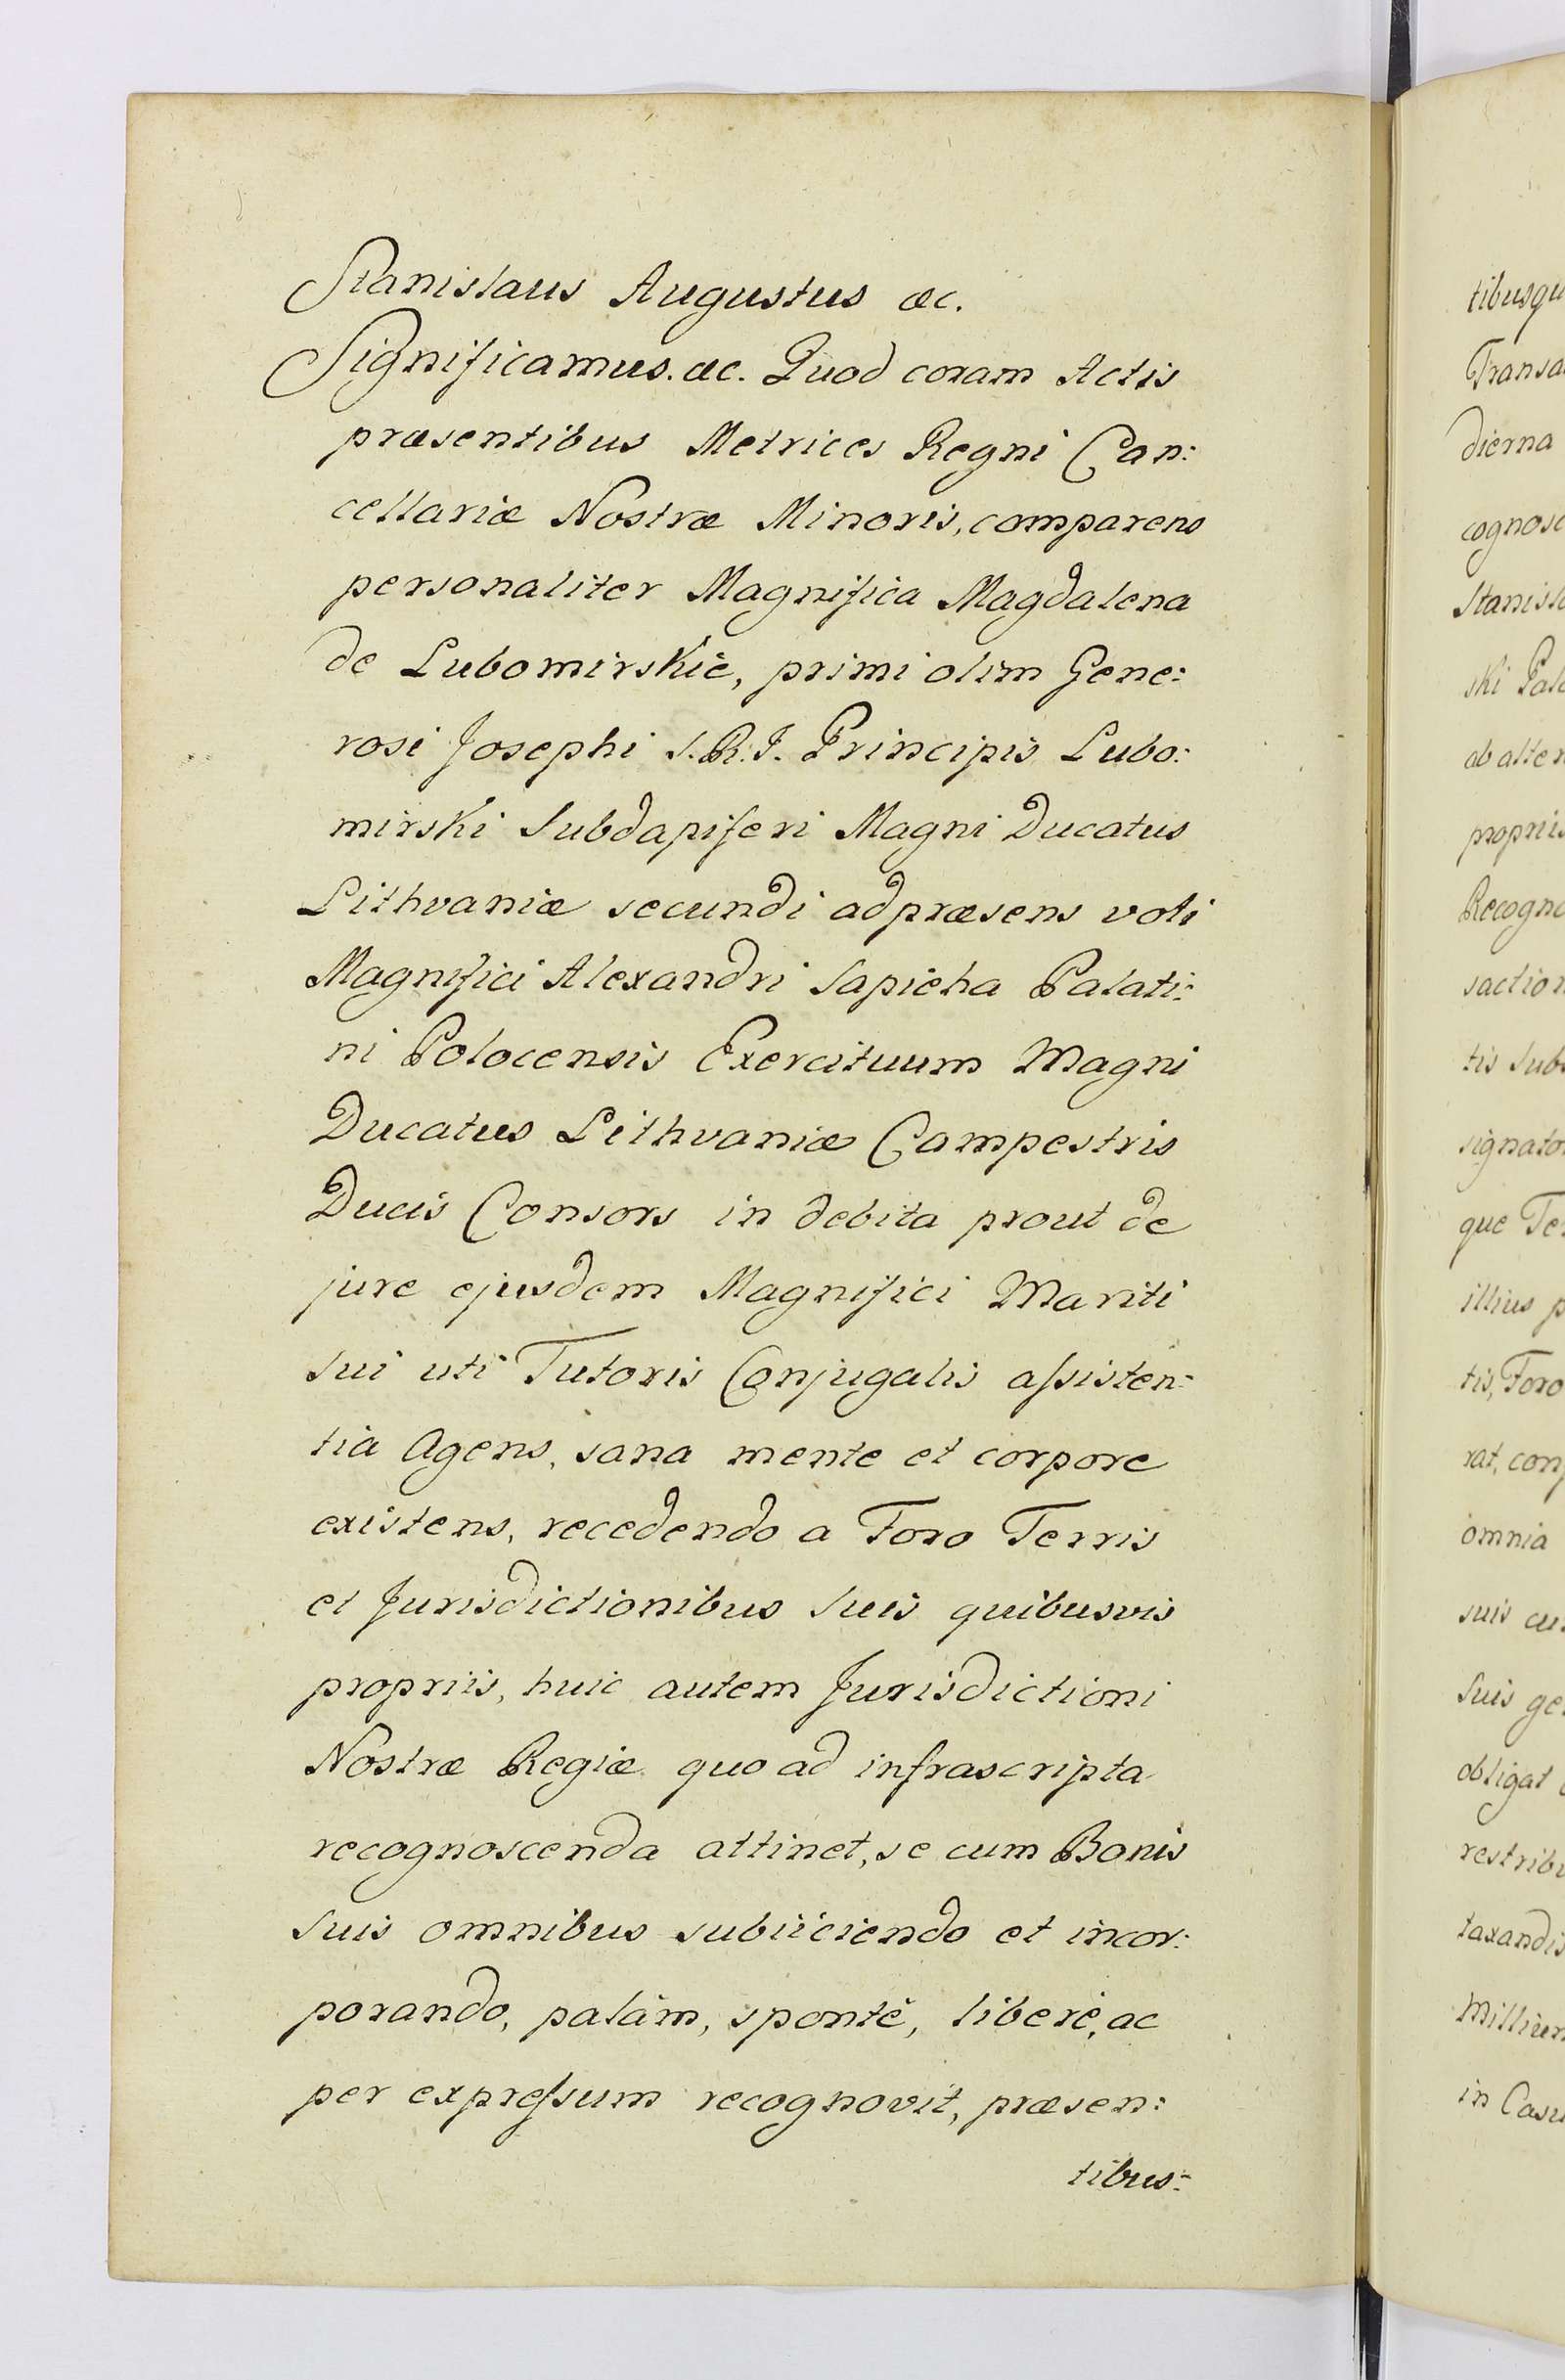 Stanislaus Augustus &c.
Significamus. &c. Quod coram Actis
præsentibus Metrices Regni Can:
cellariæ Nostræ Minoris, comparens
personaliter Magnifica Magdalena
de Lubomirskie, primi olim Gene:
rosi Josephi S.R.I. Principis Lubo:
mirski Subdapiferi Magni Ducatus
Lithvaniæ secundi ad præsens voti
Magnifici Alexandri Sapieha Palati:
ni Polocensis Exercituum Magni
Ducatus Lithvaniæ Campestris
Ducis Consors in debita prout de
jure ejusdem Magnifici Mariti
Sui uti Tutoris Conjugalis aſsisten:
tia Agens, sana mente et corpore
existens, recedendo a Foro Terris
et Jurisdictionibus Suis quibusvis
propriis, huic autem Jurisdictioni
Nostræ Regiæ quo ad infrascripta
recognoscenda attinet, se cum Bonis
Suis omnibus subiiciendo et incor:
porando, palàm, spontè, liberè, ac
per expreſsum recognovit, præsen:
tibus:
tibusqu
Transa
dierna
cognosc
Stanisla
ski Pala
ab alter
propriis
Recogno
saction
tis Subs
signato
que Te
illius p
tis, Foro
rat, con
omnia
suis cu
Suis ge
obligat
restribu
taxandis
Millium
in Casu